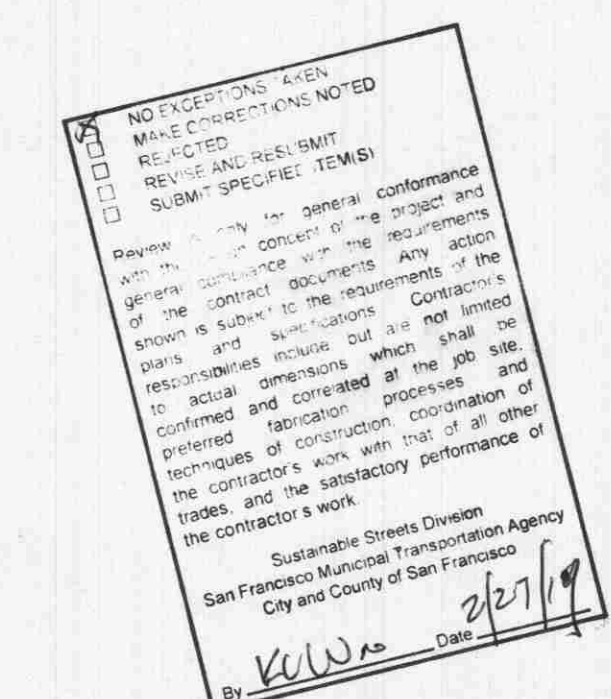 NO EXCEPTIONS TAKEN
MAKE CORRECTIONS NOTED
REJECTED
REVISE AND RESUBMIT
SUBMIT SPECIFIED ITEM(S)
Review is only for general conformance
with the design concept of the project and
general compliance with the requirements
of the contract documents. Any action
shown is subject to the requirements of the
plans and specifications. Contractor's
responsibilities include but are not limited
to actual dimensions which shall be
confirmed and correlated at the job site,
preferred fabrication processes and
techniques of construction, coordination of
the contractor's work with that of all other
trades, and the satisfactory performance of
the contractor s work.
Sustainable Streets Division
San Francisco Municipal Transportation Agency
City and County of San Francisco
By Date 2/27/19